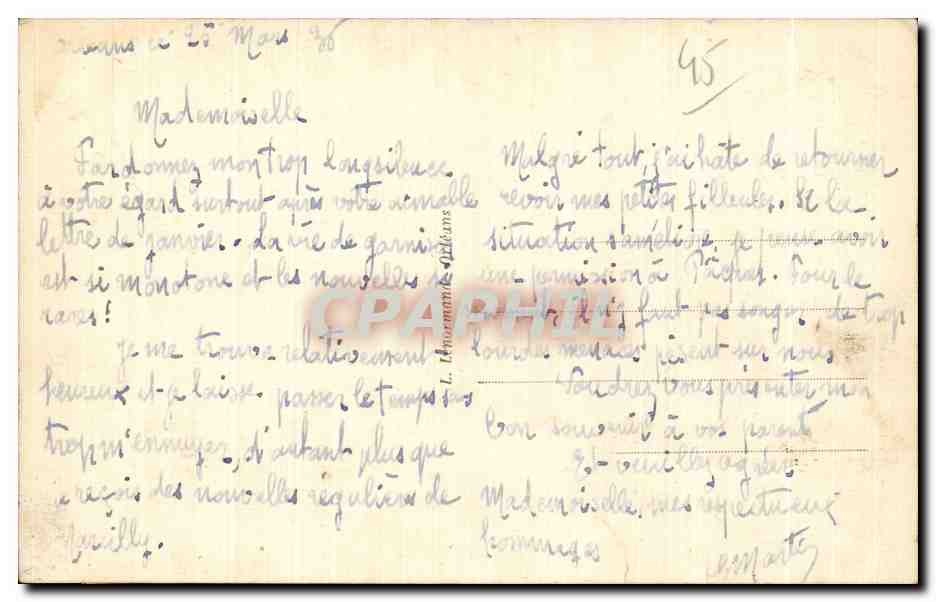 ce 25 Mars 36
45
Mademoiselle
Pardonnez mon trop long silence
à votre égard surtout après votre aimable
lettre de janvier. La vie de garnison
est si monotone et les nouvelles si
rares !
Je me trouve relativement
heureux et je laisse passer le temps sans
trop m'ennuyer, d'autant plus que
je reçois des nouvelles régulières de
Marcilly.
L. Lenormand - Orléans
Malgré tout, j'ai hâte de retourner
revoir mes petites filleules. Si la
situation s'améliore, je pense avoir
une permission à Pâques. Pour le
moment il n'y faut pas songer, de trop
lourdes menaces pèsent sur nous.
Voudrez-vous présenter mon
bon souvenir à vos parents
Et veuillez agréer
Mademoiselle, mes respectueux
hommages
Martin
CPAPHIL